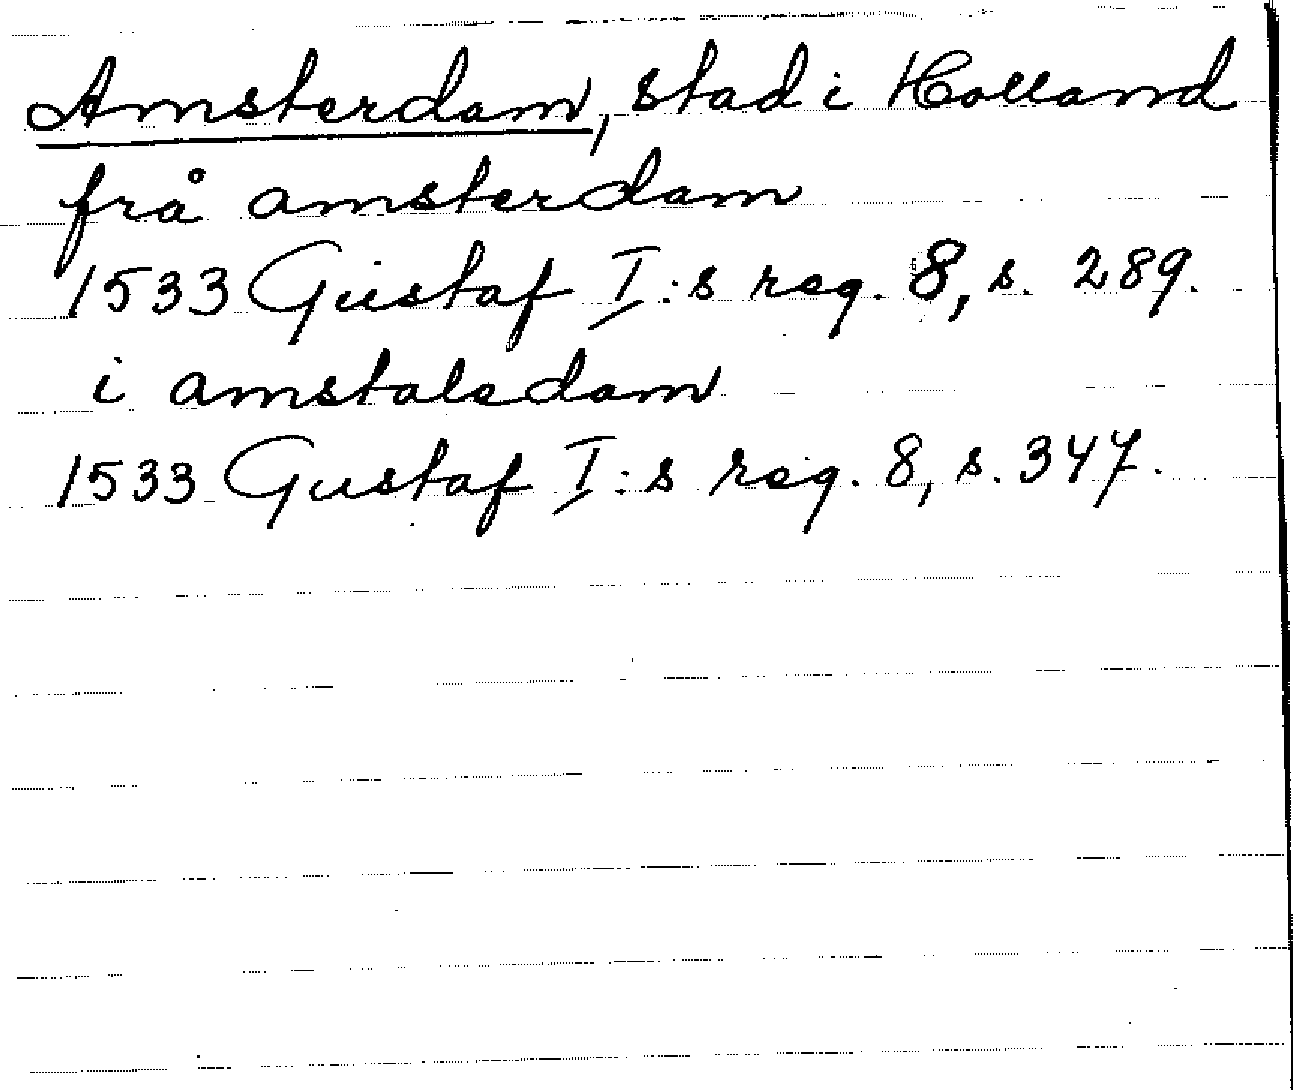 Amsterdam, stad i Holland
frå amsterdam
1533 Gustaf I:s reg. 8, s. 289.
i amstalsdam
1533 Gustaf I:s reg. 8, s. 347.